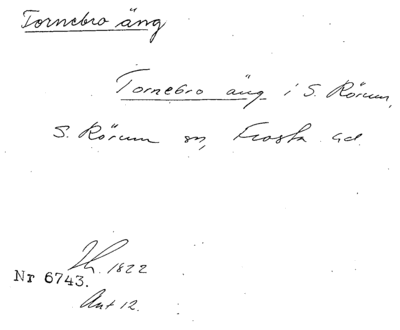 Tornebro äng
Tornebro äng i S. Rörum,
S. Rörum sn, Frosta hd.
Th. 1822
Nr 6743.
Ant 12.